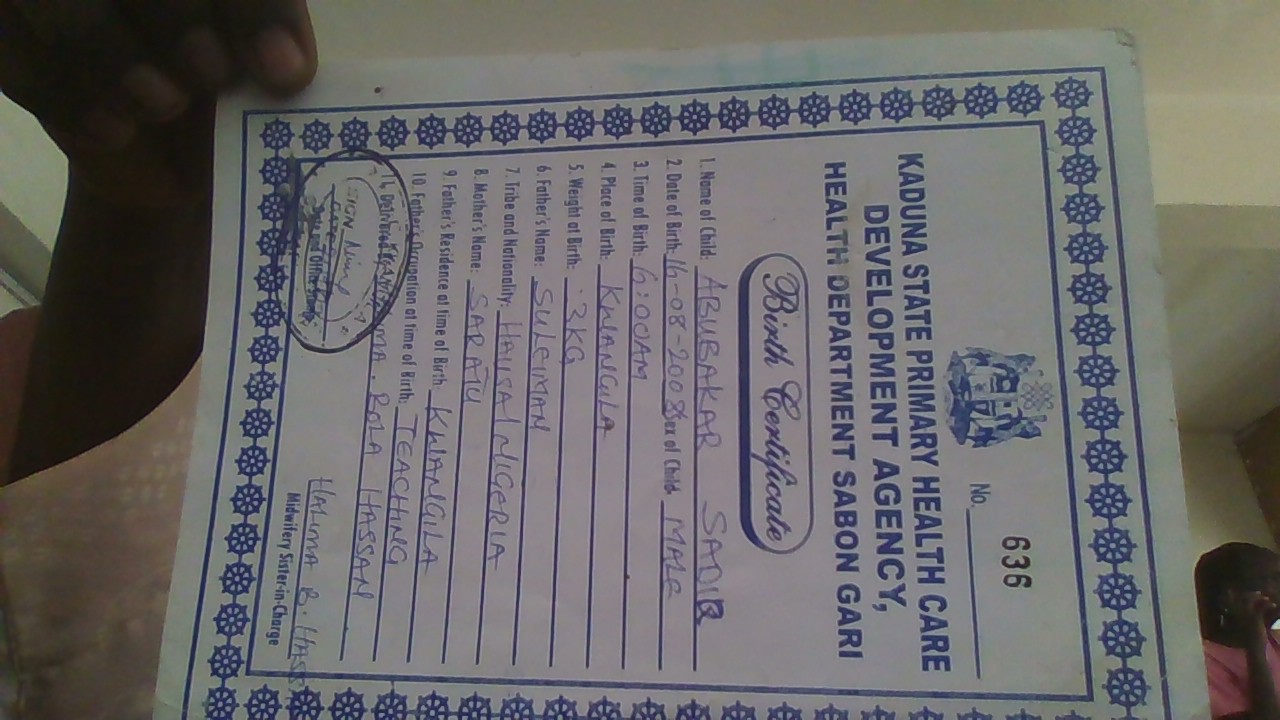 No. 636
KADUNA STATE PRIMARY HEALTH CARE
DEVELOPMENT AGENCY,
HEALTH DEPARTMENT SABON GARI
Birth Certificate
1. Name of Child: ABUBAKAR SADIQ
2. Date of Birth: 16-08-2008 Sex of Child MALE
3. Time of Birth: 6:00AM
4. Place of Birth: KWANGILA
5. Weight at Birth: .3KG
6. Father's Name: SULEIMAN
7. Tribe and Nationality: HAUSA/NIGERIA
8. Mother's Name: SARATU
9. Father's Residence at time of Birth KWANGILA
10. Father's Occupation at time of Birth: TEACHING
ROLA HASSAN
HALIMA B. HASS
Midwifery Sister-in-Charge